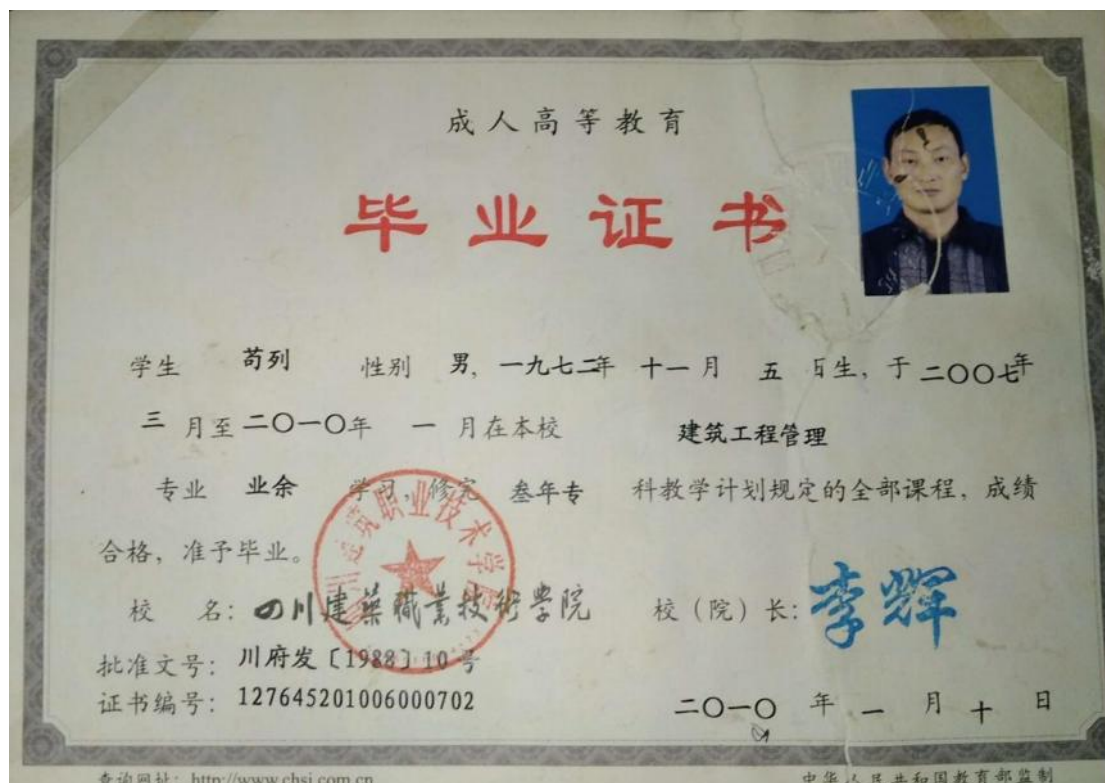 成人高等教育
毕业证书
学生 苟列 性别 男, 一九七二年 十一月 五 日生, 于 二〇〇七年
三 月至 二〇一〇年 一 月在本校 建筑工程管理
专业 业余 学习, 修完 叁年专 科教学计划规定的全部课程, 成绩
合格, 准予毕业。
校 名: 四川建築職業技術學院 校(院)长: 李辉
批准文号: 川府发〔1988〕10号
证书编号: 127645201006000702
二〇一〇 年 一 月 十 日
四川建筑职业技术学院
查询网址: http://www.chsi.com.cn 中华人民共和国教育部监制